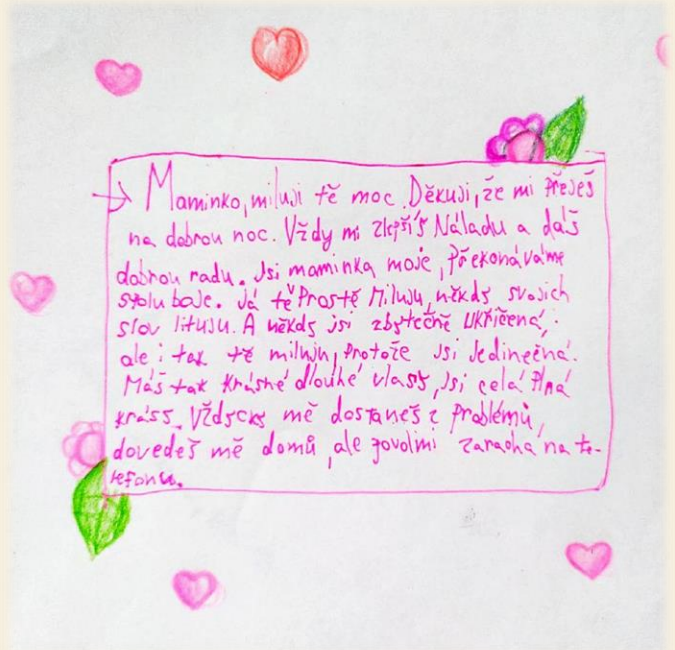 Maminko, miluji tě moc. Děkuji, že mi přeješ
na dobrou noc. Vždy mi zlepšíš Náladu a dáš
dobrou radu. Jsi maminka moje, Překonáváme
spolu boje. Já tě Prostě Miluju, někdy svojich
slov lituju. A někdy jsi zbytečně ukřičená,
ale i tak tě miluju, Protože jsi Jedinečná.
Máš tak Krásné dlouhé vlasy, Jsi celá Plná
krásy. Vždycky mě dostaneš z Problémů,
dovedeš mě domů, ale povol mi zaracha na te-
lefonu.